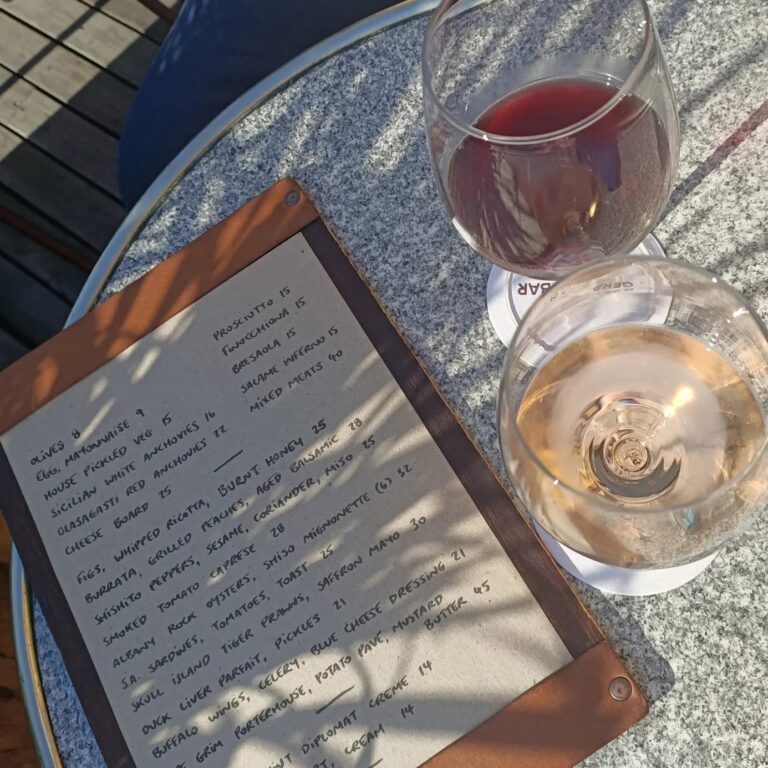 PROSCIUTTO 15
FINOCCHIONA 15
BRESAOLA 15
SALAME INFERNO 15
MIXED MEATS 40
OLIVES 8
EGG, MAYONNAISE 9
HOUSE PICKLED VEG 15
SICILIAN WHITE ANCHOVIES 16
OLASAGASTI RED ANCHOVIES 22
CHEESE BOARD 25
FIGS, WHIPPED RICOTTA, BURNT HONEY 25
BURRATA, GRILLED PEACHES, AGED BALSAMIC 28
SHISHITO PEPPERS, SESAME, CORIANDER, MISO 25
SMOKED TOMATO CAPRESE 28
ALBANY ROCK OYSTERS, SHISO MIGNONETTE (6) 32
S.A. SARDINES, TOMATOES, TOAST 25
SKULL ISLAND TIGER PRAWNS, SAFFRON MAYO 30
DUCK LIVER PARFAIT, PICKLES 21
BUFFALO WINGS, CELERY, BLUE CHEESE DRESSING 21
GRIM PORTERHOUSE, POTATO PAVE, MUSTARD BUTTER 45
DIPLOMAT CREME 14
CREAM 14
BAR